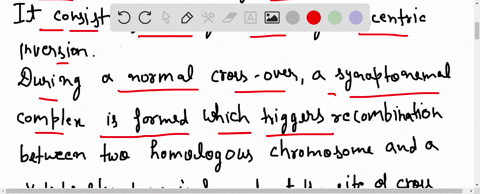 It consist centric
inversion.
During a normal cross-over, a synaptonemal
complex is formed which triggers recombination
between two homologous chromosome and a
site of cross